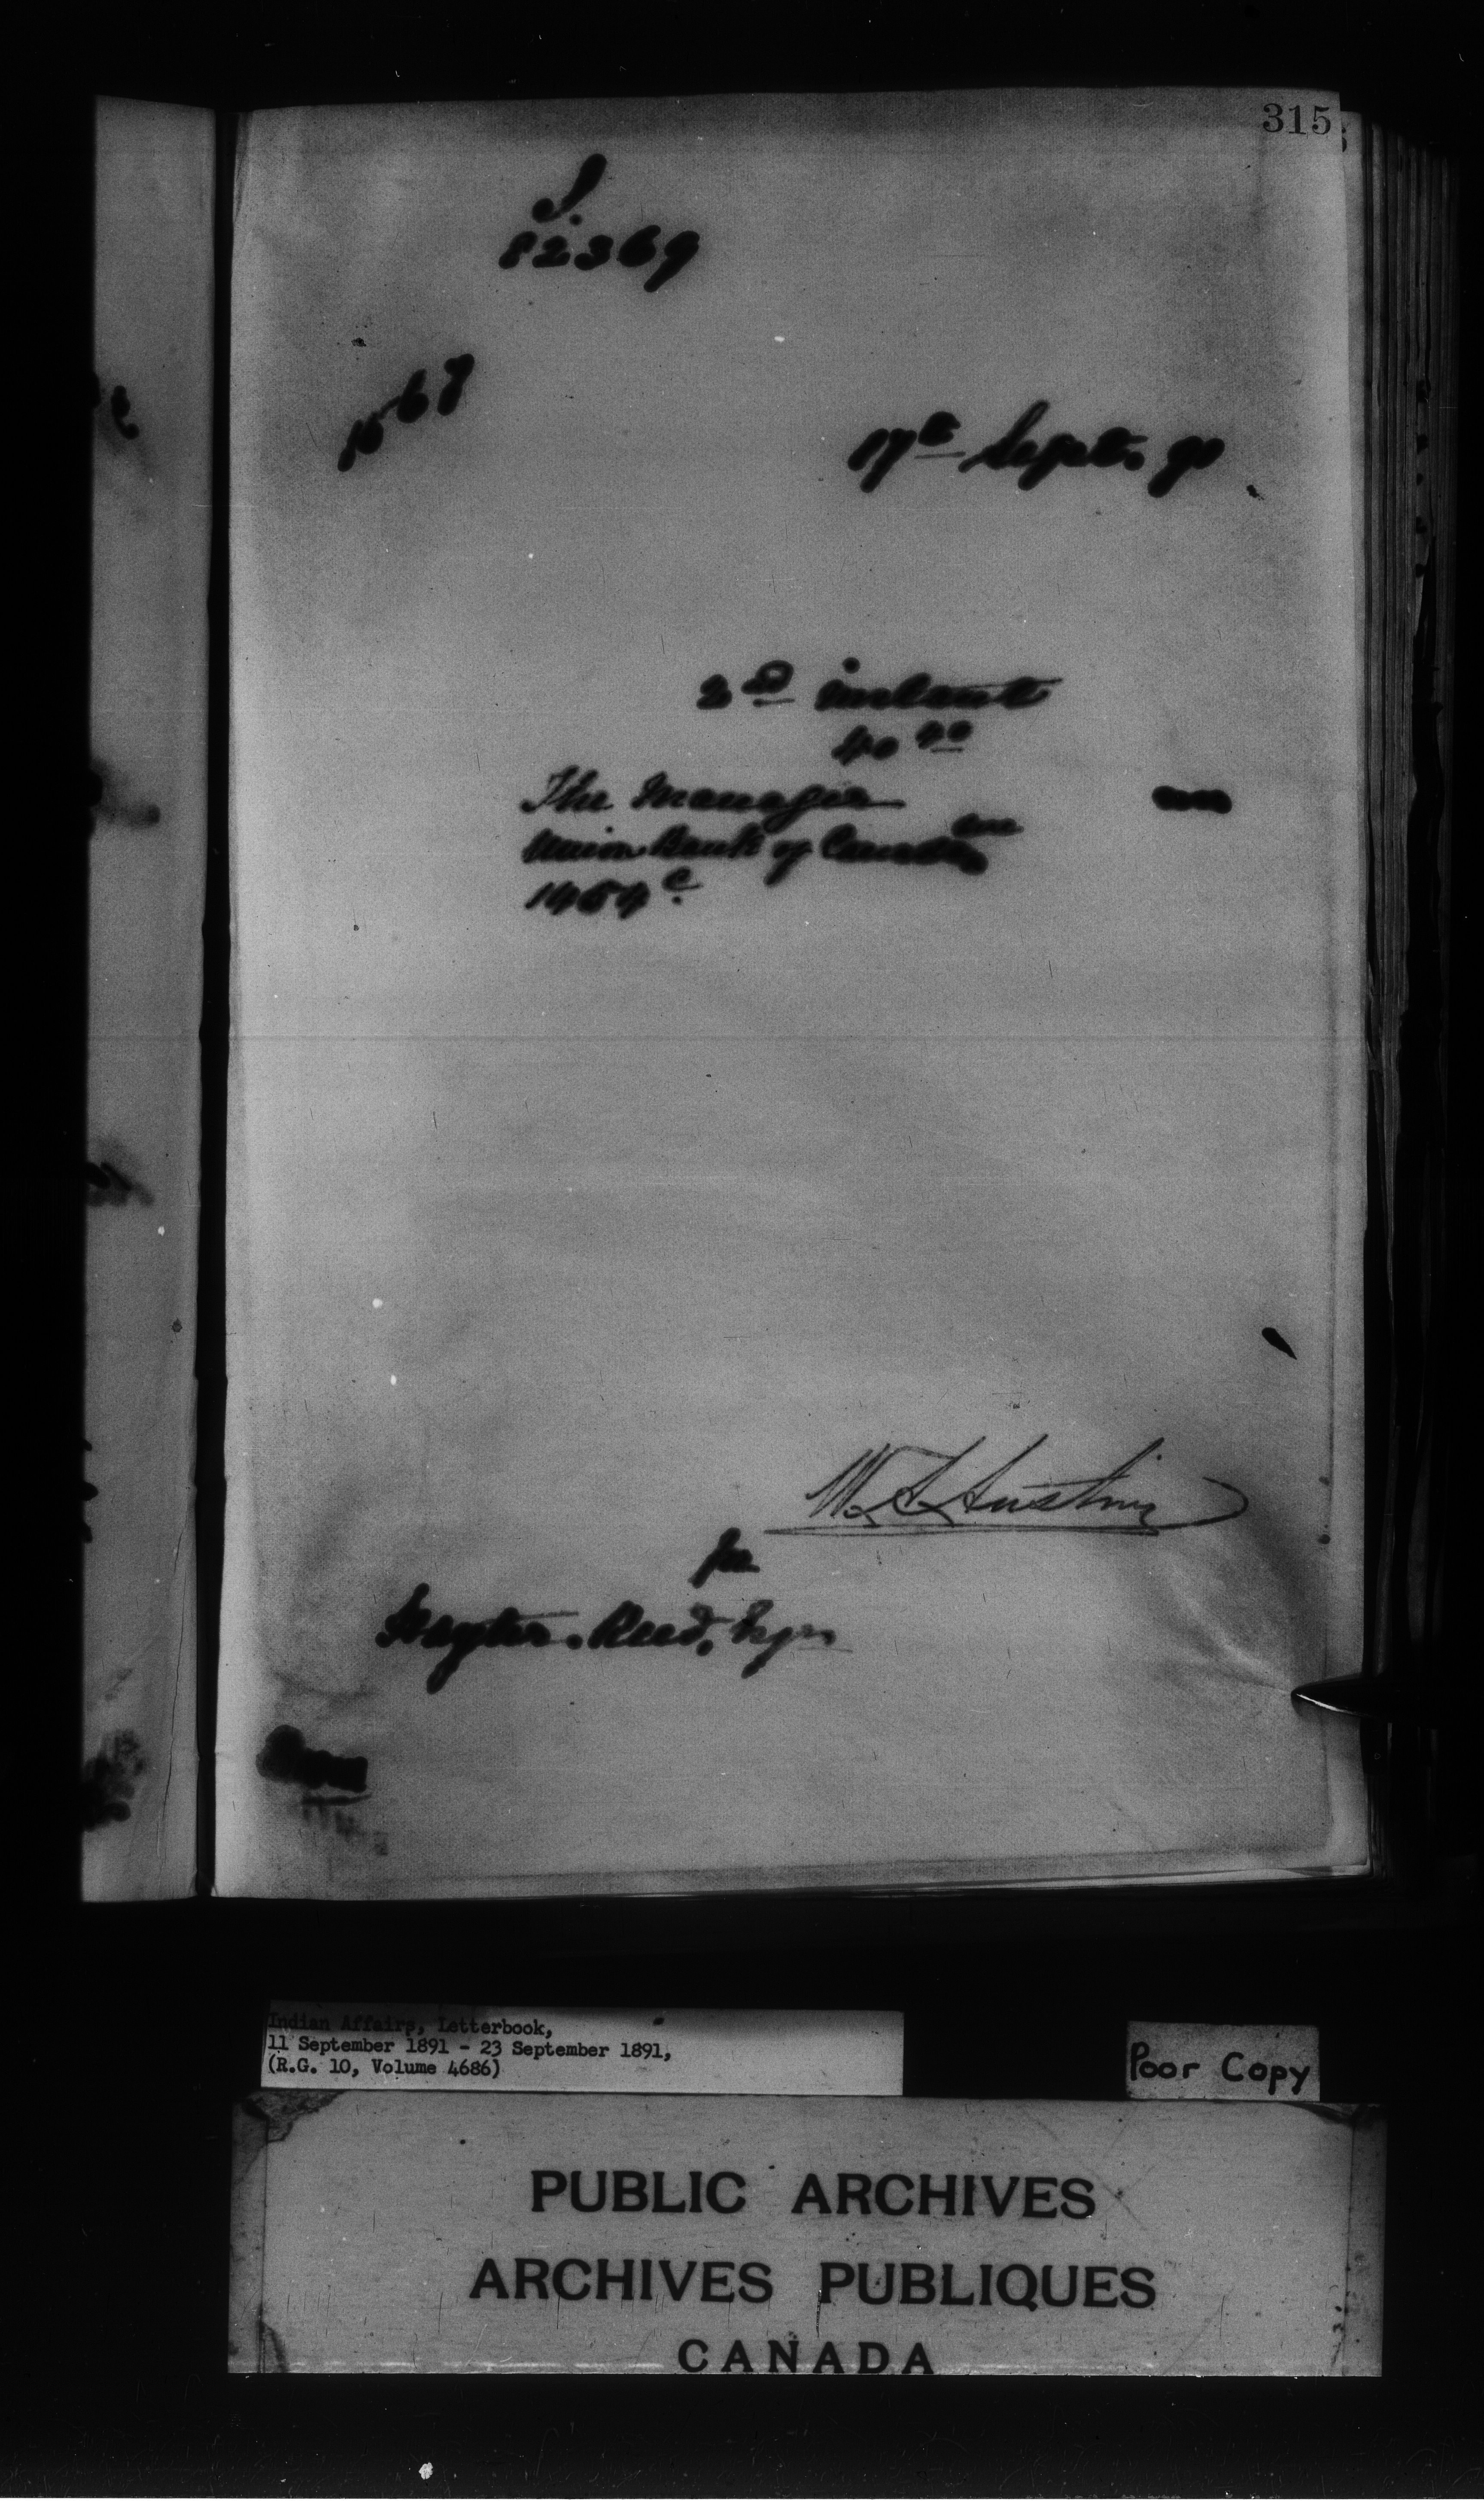 315
S.
82369
17th Sept. 91
2nd instant
40 40
The Manager
Union Bank of Canada
1464 c
W. A. Austin
for
Hayter Reed, Esqre
Indian Affairs, Letterbook,
11 September 1891 - 23 September 1891,
(R.G. 10, Volume 4686)
Poor Copy
PUBLIC ARCHIVES
ARCHIVES PUBLIQUES
CANADA